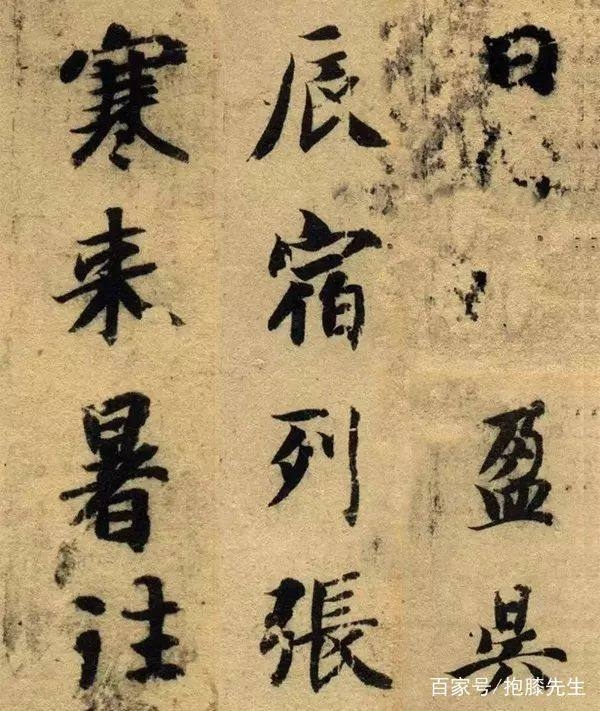 日盈昃
辰宿列張
寒来暑往
百家号/抱膝先生